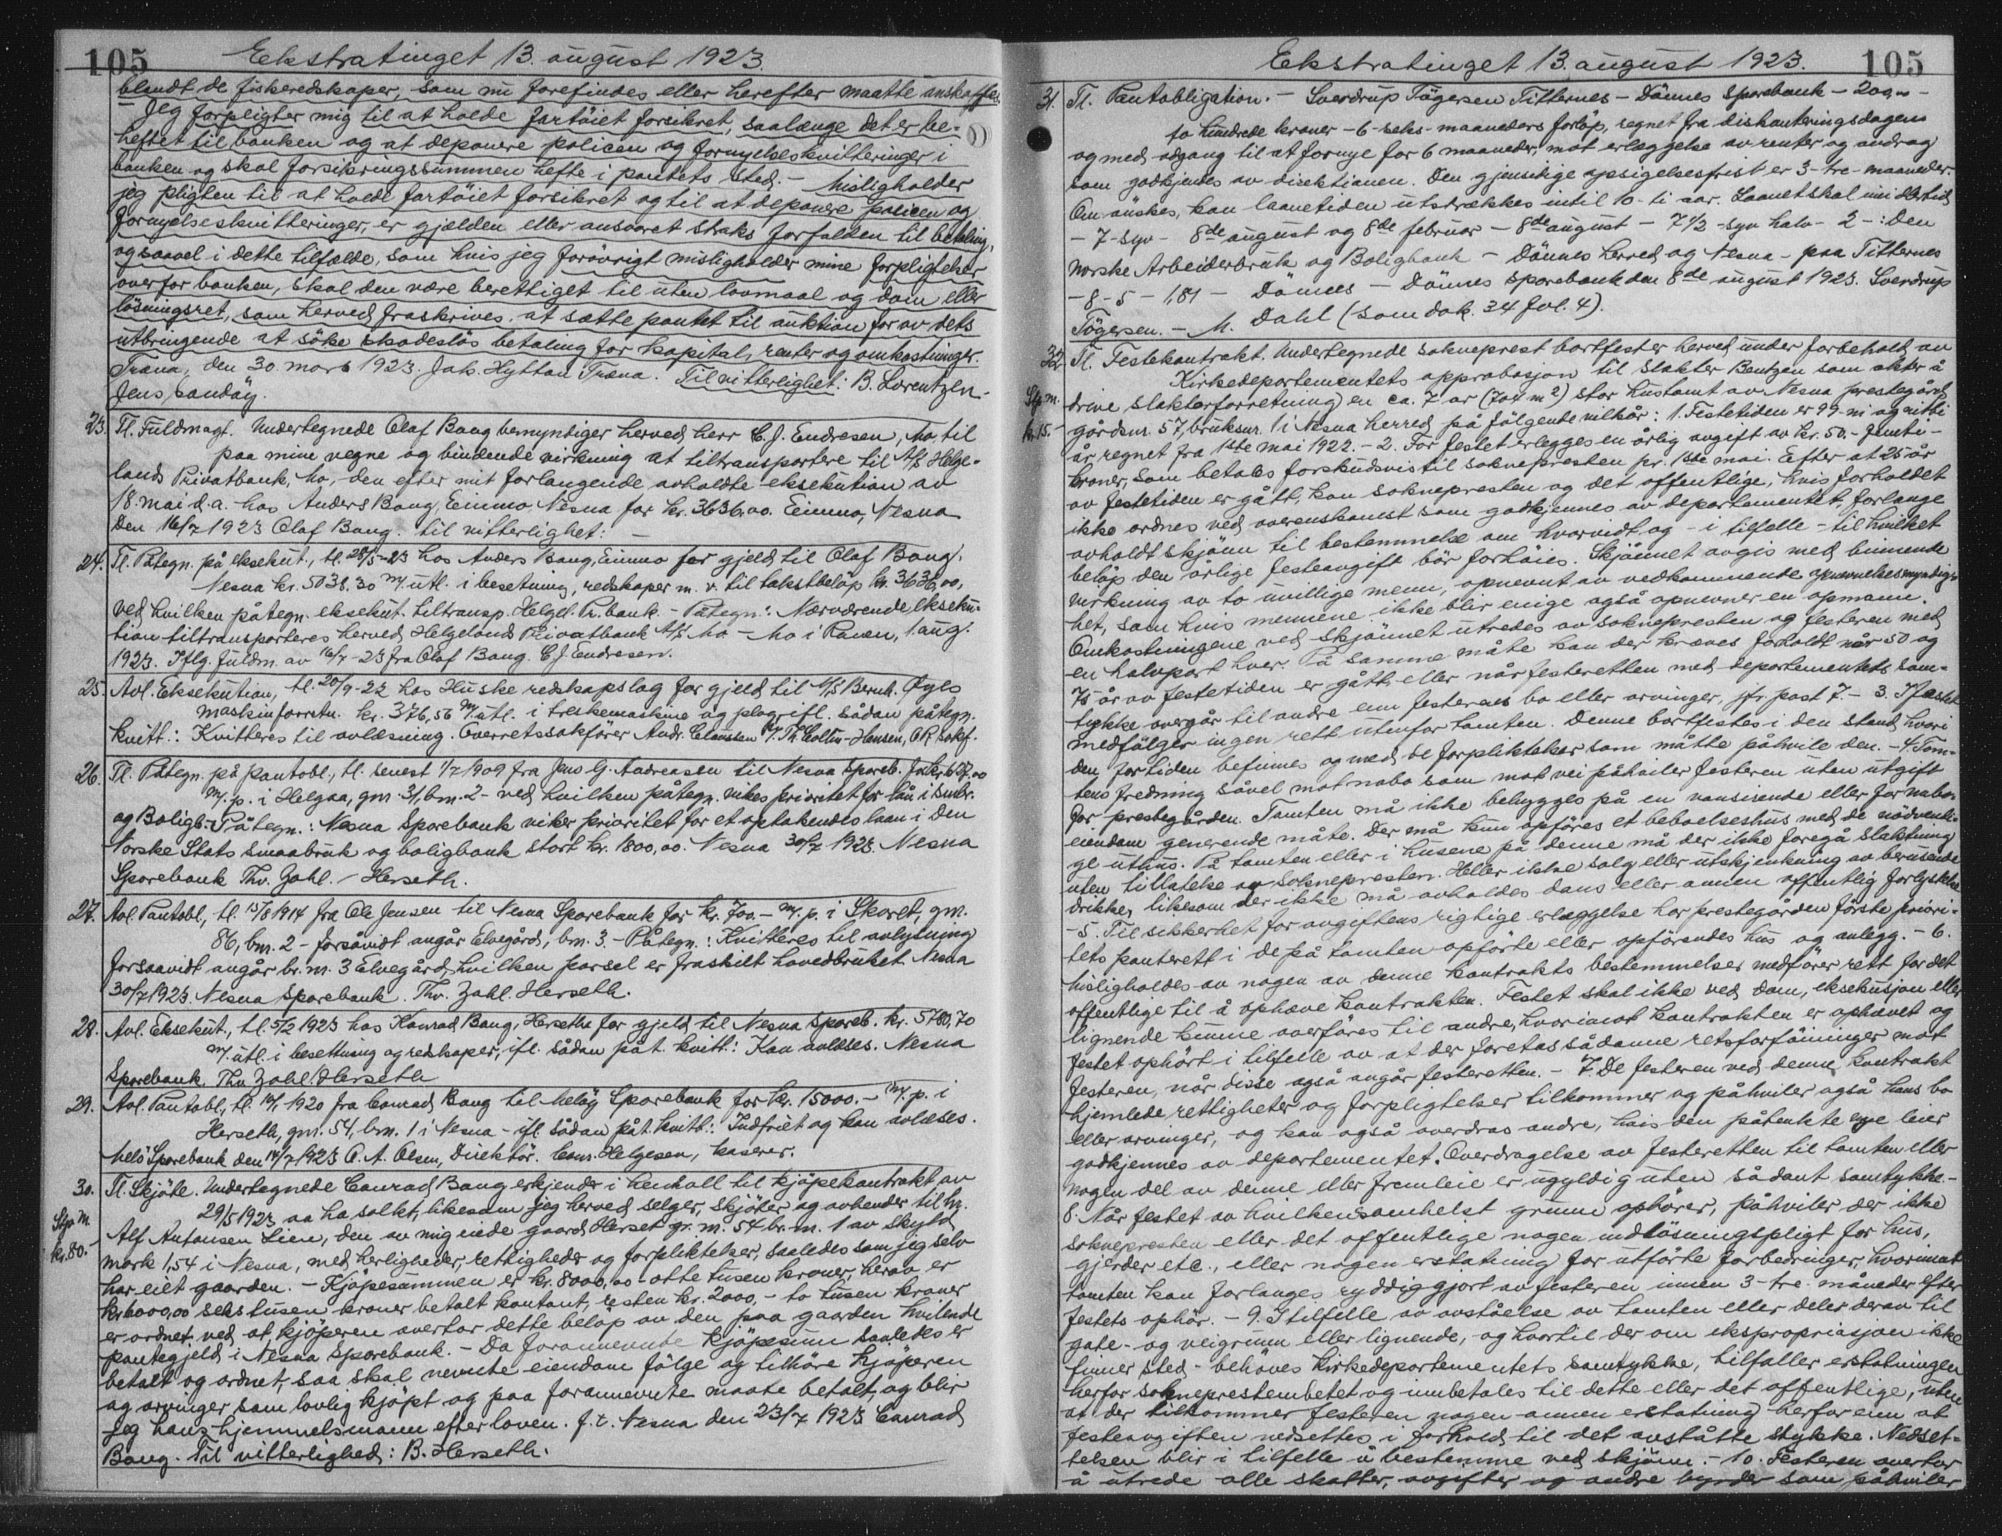 105 Ekstratinget 13. august 1923.
blandt de fiskeredskaper, som nu forefindes eller herefter maatte anskaffes
- Jeg forpligter mig til at holde fartöiet forsikret, saalænge det er be-
heftet til banken og at deponere policen og fornyelseskvitteringer i
banken og skal forsikringssummen hefte i pantets sted. - Misligholder
jeg pligten til at holde fartöiet forsikret og til at deponere policen og
fornyelseskvitteringer, er gjælden eller ansvaret straks forfalden til betaling,
og saavel i dette tilfælde, som hvis jeg forövrigt misligholder mine forpligtelser
overfor banken, skal den være berettiget til uten lovmaal og dom eller
lösningsret, som herved fraskrives, at sætte pantet til auktion for av dets
utbringende at söke skadeslös betaling for kapital, renter og omkostninger.
Træna, den 30 mars 1923. Joh. Hyttan Træna. Til vitterlighet: B. Lorentzen.
Jens Sandöy.
23. Tl. Fuldmagt. Undertegnede Olaf Bang bemyndiger herved herr C. J. Endresen, Mo, til
paa mine vegne og bindende virkning at tiltransportere til A/S Helge-
lands Privatbank, Mo, den efter mit forlangende avholdte eksekution av
18. mai d.a. hos Anders Bang, Einmo, Nesna for kr. 3636,00. Einmo, Nesna
den 16/7 1923 Olaf Bang. Til vitterlighet: -
24. Tl. Påtegn. på eksekut., tl. 28/5-23 hos Anders Bang, Einmo for gjeld til Olaf Bang,
Nesna kr. 5038,30 m/utl. i besetning, redskaper m. v. til takstbeløp kr. 3636,00,
ved hvilken påtegn. eksekut. tiltransp. Helgel. Pr. bank. - Påtegn: Nærværende eksekù-
tion tiltransporteres herved Helgelands Privatbank A/S Mo - Mo i Ranen, 1. aug.
1923. Iflg. fuldm. av 16/7-23 fra Olaf Bang. C J Endresen.
25. Avl. Eksekution, tl. 20/9-22 hos Huske redskapslag for gjeld til A/S Bernh. Øyls
maskinforretn. kr. 376,56 m/utl. i treskemaskine og plog, ifl. sådan påtegn.
kvitt.: Kvitteres til avlæsning. Overretssakförer Andr. Claussen v/ Th Coltu-Hansen, O R sakf.
26. Tl. Påtegn. på pantobl., tl. senest 1/7 1909 fra Jens G. Andreassen til Nesna Spareb. for kr. 00
m/p. i Helgaa, gnr. 31, bnr. 2 - ved hvilken påtegn. vikes prioritet for lån i Småbr.
og Boligb. - Påtegn.: Nesna Sparebank viker prioritet for et optakendes laan i Den
Norske Stats Smaabruk og boligbank stort kr. 1800,00. Nesna 30/7 1923. Nesna
Sparebank Thv. Zahl. / Herseth.
27. Avl. Pantobl., tl. 15/8 1914 fra Ole Jensen til Nesna Sparebank for kr. 700.- m/p. i Skoret, gnr.
86, bnr. 2 - forsåvidt angår Elvegård, bnr. 3. - Påtegn.: Kvitteres til avlysning
forsaavidt angår br.nr. 3 Elvegård, hvilken parsel er fraskilt hovedbruket. Nesna
30/7 1923. Nesna Sparebank. Thv. Zahl. Herseth.
28. Avl. Eksekut., tl. 5/2 1923 hos Konrad Bang, Herseth for gjeld til Nesna Spareb. kr. 5780,70
m/utl. i besettning og redskaper, ifl. sådan påt. kvitt.: Kan avlæses. Nesna
Sparebank. Thv. Zahl. / Herseth
29. Avl. Pantobl., tl. 12/1 1920 fra Conrad Bang til Melöy Sparebank for kr. 15000.- m/p. i
Herseth, gnr. 54, bnr. 1 i Nesna - ifl. sådan påt. kvitt.: Indfriet og kan avlæses.
Melö Sparebank den 14/7 1923 O. A. Olsen, Direktör. Conr. Helgesen, kaserer.
30. Tl. Skjöte. Undertegnede Conrad Bang erkjender i henhold til kjöpekontrakt av
29/5 1923 aa ha solht, likesom jeg herved selger, skjöter og avhender til hr.
Stp. M. Alf Antonsen Lien, den av mig eiede gaard Herset gr. nr. 54 br. nr. 1 av skyld
kr. 80.- mark 1,54 i Nesna, med herligheder, rettigheder og forpliktelser, saaledes som jeg selv
har eiet gaarden. - Kjöpesummen er kr. 8000,00 - otte tusen kroner, herav er
kr. 6000,00 seks tusen kroner betalt kontant, resten kr. 2000,- to tusen kroner
er ordnet ved at kjöperen overtar dette belöp av den paa gaarden hvilende
pantegjeld i Nesna Sparebank. - Da forannevnte kjöpesum saaledes er
betalt og ordnet, saa skal nevnte eiendom fölge og tilhöre kjöperen
og arvinger som lovlig kjöpt og paa forannevnte maate betalt, og blir
jeg hans hjemmelsmann efter loven. f. t. Nesna den 23/7 1923 Conrad
Bang. Til vitterlighed: B. Herseth.
Ekstratinget 13. august 1923. 105
31. Tl. Pantobligation. - Sverdrup Tögersen Titternes - Dönnes Sparebank - 200,- -
to hundrede kroner - 6 - seks - maaneders forlöp, regnet fra diskonteringsdagen
og med adgang til at fornye for 6 maaneder, mot erlæggelse av renter og avdrag
som godkjendes av direktionen. Den gjensidige opsigelsesfrist er 3 - tre - maaneder.
Om önskes, kan laanetiden utstrækkes indtil 10 - ti aar. Laanet skal imidlertid
- 7 - syv - 8de august og 8de februar - 8de august - 7 1/2 - syv halv - 2 -: Den
norske Arbeiderbruk og Boligbank - Dönnes herred og Nesna - paa Titternes
- 8 - 5 - 1,81 - Dönnes - Dönnes Sparebank den 8de august 1923. Sverdrup
Tögersen. - M. Dahl (som dok. 34 fol. 4).
32. Tl. Festekontrakt. Undertegnede sokneprest bortfester herved under forbehold av
Kirkedepartementets approbasjon til slakter Bentzen som akter å
Stp. m. drive slakterforretning en ca. 7 ar (707 m2) stor hustomt av Nesna prestegård
kr. 15.- gårdsnr. 57, bruksnr. 1 i Nesna herred på følgende vilkår: 1. Festetiden er 99 - ni og nitti
år regnet fra 1ste mai 1922. - 2. For festet erlegges en årlig avgift av kr. 50.- femti -
kroner, som betales forskudsvis til soknepresten pr. 1ste mai. Efter at 25 år
av festetiden er gått, kan soknepresten og det offentlige, hvis forholdet
ikke ordnes ved overenskomst som godkjennes av departementet, forlange
avholdt skjönn til bestemmelse om hvorvidt og - i tilfelle - til hvilket
belöp den årlige festeavgift bör forhöies. Skjönnet avgis med bindende
virkning av to uvillige menn, opnevnt av vedkommende opnevnelsesmyndig-
het, som hvis mennene ikke blir enige også opnevner en opmann.
Omkostningene ved skjönnet utredes av soknepresten og festeren med
en halvpart hver. På samme måte kan der kreves forholdt når 50 og
75 år av festetiden er gått eller når festeretten med departementets sam-
tykke overgår til andre enn festerens bo eller arvinger, jfr. post 7. - 3. I festet
medfölger ingen rett utenfor tomten. Denne bortfestes i den stand, hvori
den for tiden befinnes og med de forpliktelser som måtte påhvile den. - 4. Tom-
tens fredning såvel mot nabo som mot vei påhviler festeren uten utgift
for prestegården. Tomten må ikke bebygges på en vansirende eller for nabo-
eiendom generende måte. Der må kun opføres et beboelseshus med de nödvendi-
ge uthus. På tomten eller i husene på denne må der ikke foregå slaktning
uten tillatelse av soknepresten. Heller ikke salg eller utskjenkning av berusende
drikker, likesom der ikke må avholdes dans eller annen offentlig forlystelse
- 5. Til sikkerhet for avgiftens rigtige erlæggelse har prestegården förste priori-
tets panterett i de på tomten opförte eller opförendes hus og anlegg. - 6.
Misligholdes av nogen av denne kontrakts bestemmelser medförer rett for det
offentlige til å ophæve kontrakten. Festet skal ikke ved dom, eksekusjon eller
lignende kunne overföres til andre, hvorimot kontrakten er ophævet og
festet ophört i tilfelle av at der foretas sådanne retsforföininger mot
festeren, når disse også angår festeretten. - 7. De festeren ved denne kontrakt
hjemlede rettigheter og forpligtelser tilkommer og påhviler også hans bo
eller arvinger, og kan også overdras andre, hvis den påtenkte nye leier
godkjennes av departementet. Overdragelse av festeretten til tomten eller
nogen del av denne eller fremleie er ugyldig uten sådant samtykke. -
8. Når festet av hvilkensomhelst grunn ophörer, påhviler der ikke
soknepresten eller det offentlige nogen indlösningspligt for hus,
gjerder etc., eller nogen erstatning for utförte forbedringer, hvorimot
tomten kan forlanges ryddiggjort av festeren innen 3 - tre - måneder efter
festets ophör. - 9. I tilfelle av avståelse av tomten eller deler derav til
gate - og veigrunn eller lignende, og hvortil der om ekspropriasjon ikke
finner sted - behöves Kirkedepartementets samtykke, tilfaller erstatningen
herfor sokneprestembetet og innbetales til dette eller det offentlige, uten
at der tilkommer festeren nogen annen erstatning herfor enn at
festeavgiften nedsettes i forhold til det avståtte stykke. Nedset-
telsen blir i tilfelle å bestemme ved skjönn. - 10. Festeren overtar
å utrede alle skatter, avgifter og andre byrder som påhviler